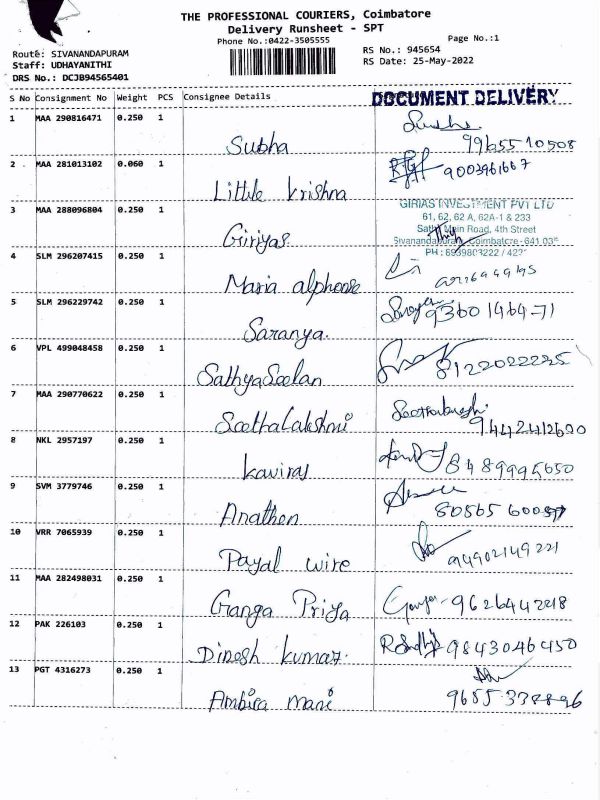 THE PROFESSIONAL COURIERS, Coimbatore
Delivery Runsheet - SPT
Phone No.:0422-3505555
Page No.:1
Route: SIVANANDAPURAM
RS No.: 945654
Staff: UDHAYANITHI
RS Date: 25-May-2022
DRS No.: DCJ3B94565401
S No Consignment No Weight PCS Consignee Details
DOCUMENT DELIVERY
1 MAA 290816471 0.250 1
Subha 9965510508
2 MAA 281013102 0.060 1
Little krishna 9003961667
3 MAA 288096804 0.250 1
GIRIAS INVESTMENT PVT LTD
61, 62, 62 A, 62A-1 & 233
Sathy Main Road, 4th Street
Sivanandapuram, Coimbatore - 641 035
Giriyas
4 SLM 296207415 0.250 1
Maria alphonse
5 SLM 296229742 0.250 1
Saranya. 93601464-71
6 VPL 499048458 0.250 1
SathyaSeelan 8122022225
7 MAA 290770622 0.250 1
SeethaLakshmi
8 NKL 2957197 0.250 1
kaviraj 8489995650
9 SVM 3779746 0.250 1
Anathen
10 VRR 7065939 0.250 1
Payal wire
11 MAA 282498031 0.250 1
Ganga Priya
12 PAK 226103 0.250 1
Dinesh kumar. 9843046450
13 PGT 4316273 0.250 1
Ambica mani